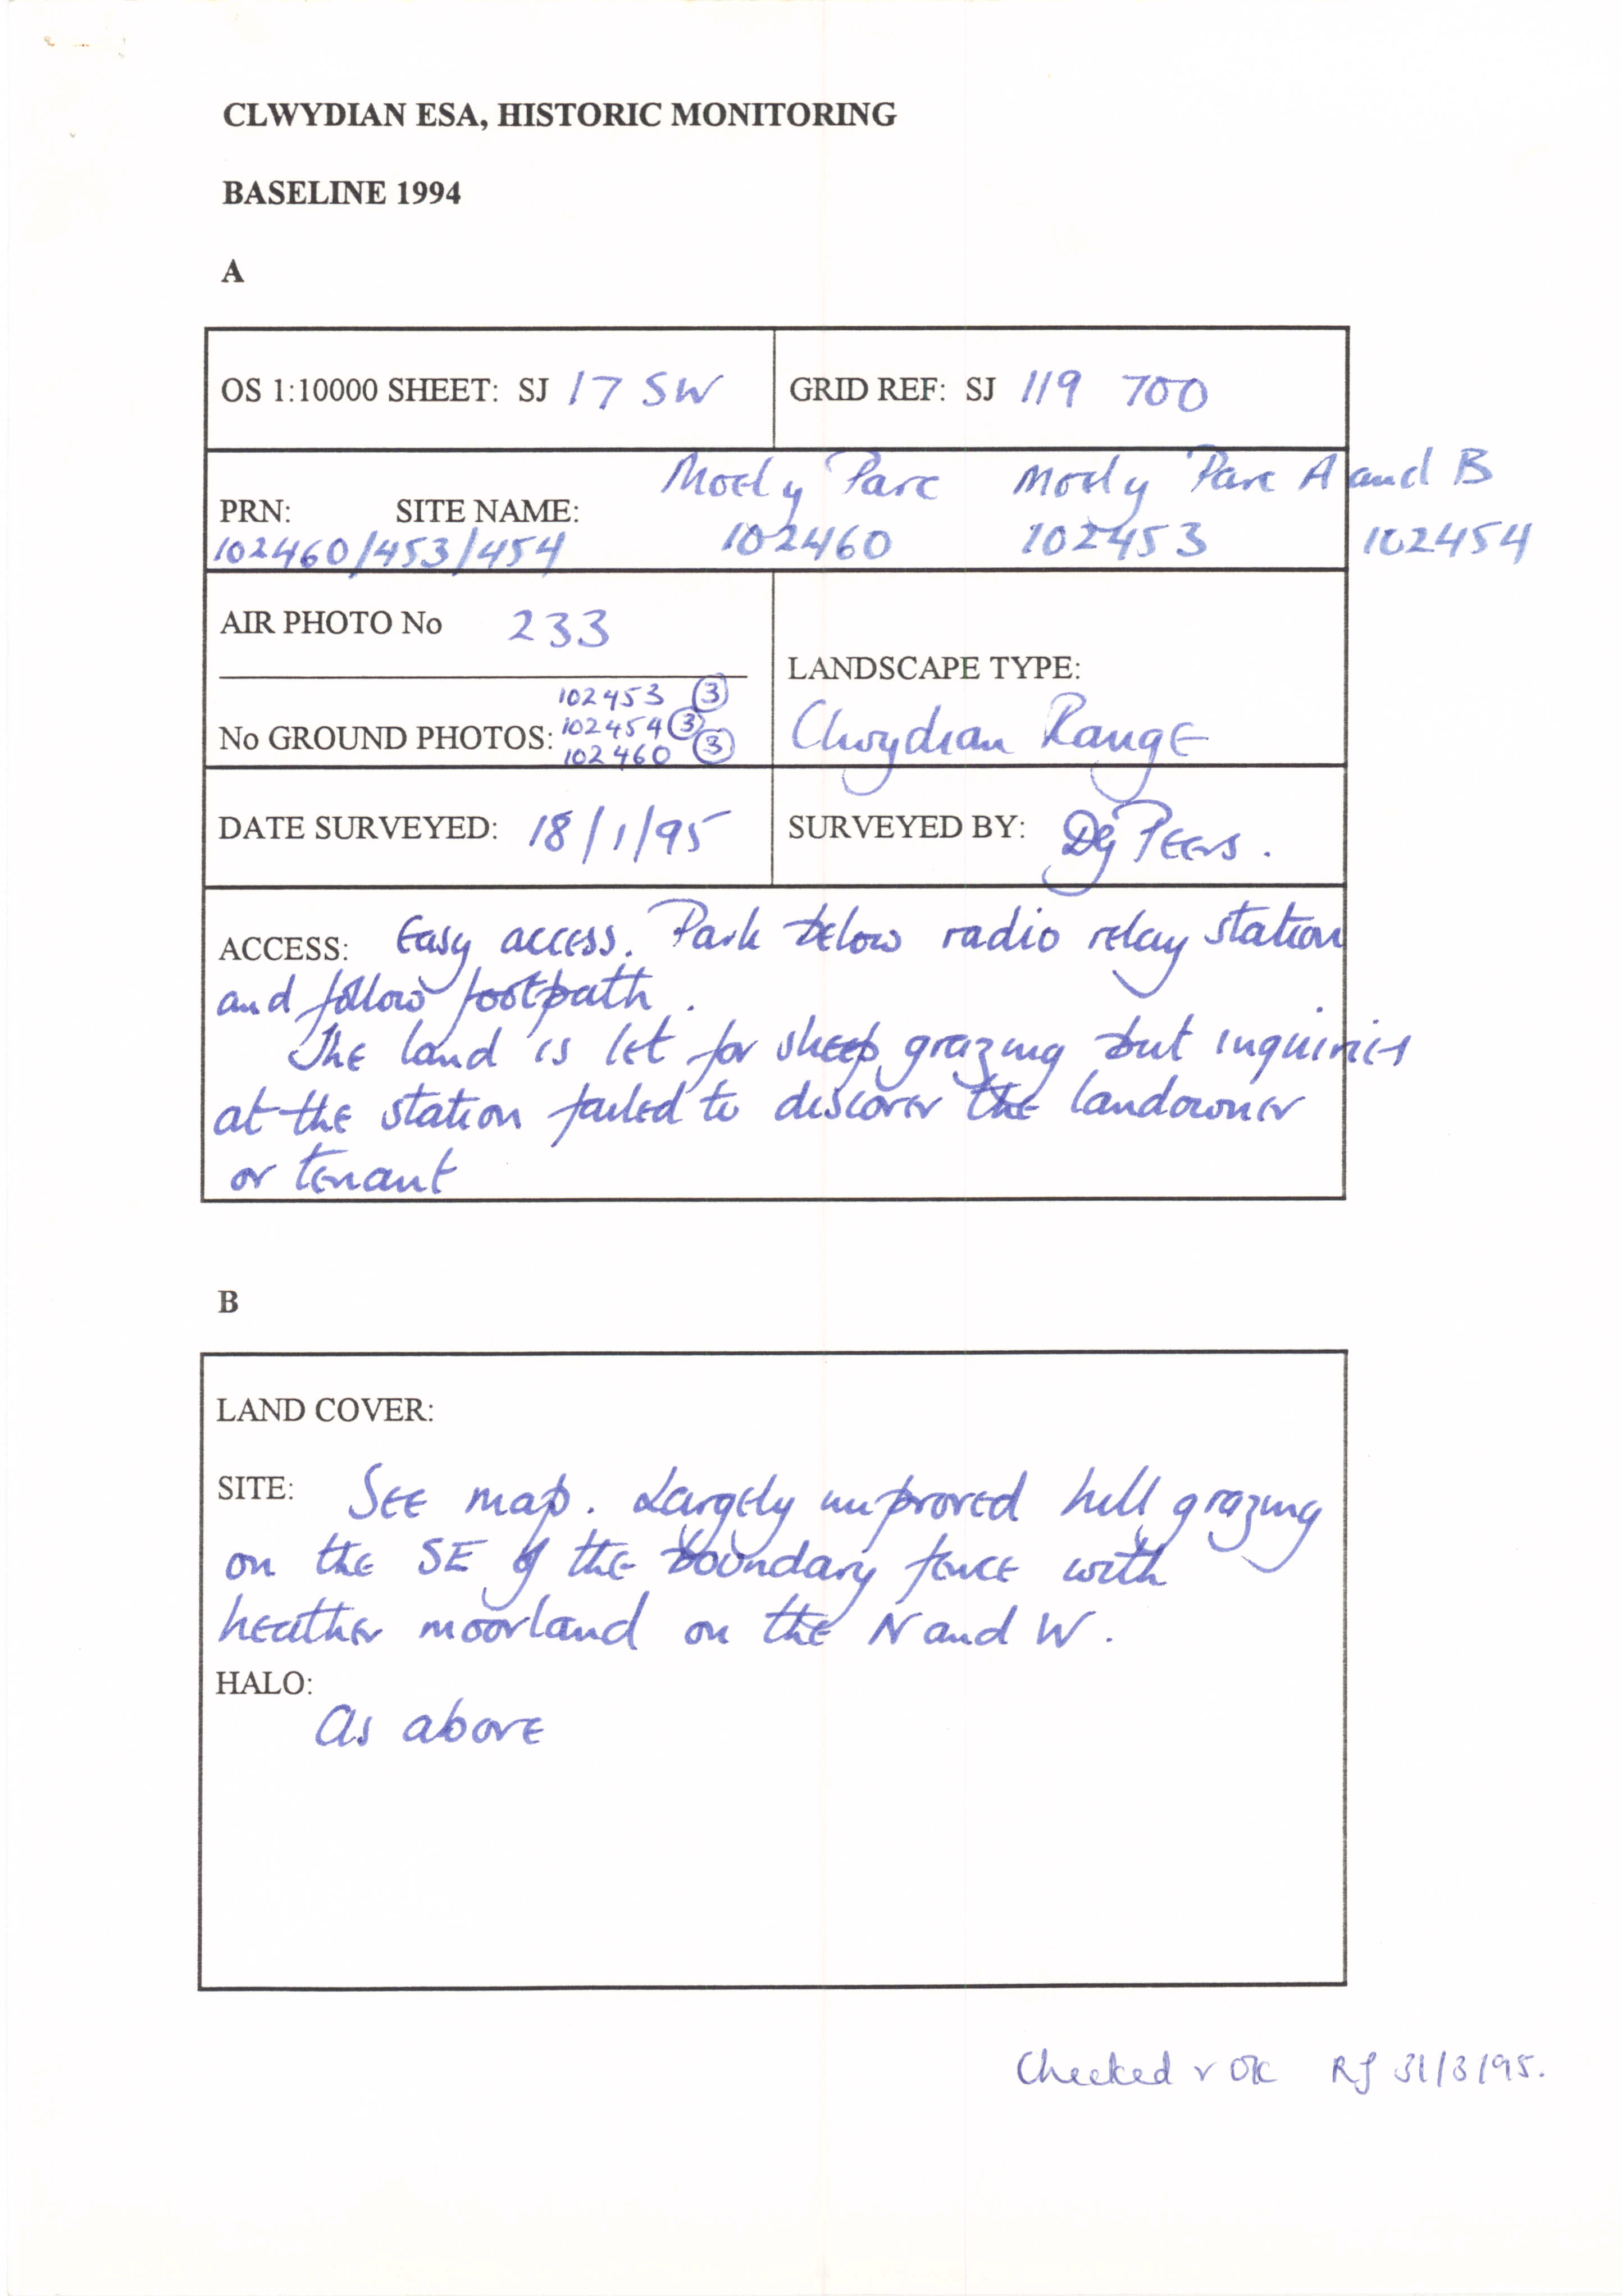 CLWYDIAN ESA, HISTORIC MONITORING
BASELINE 1994
A
OS 1:10000 SHEET: SJ 17 SW
GRID REF: SJ 119 700
Moel y Parc Moel y Parc A and B
PRN: SITE NAME:
102460/453/454 102460 102453 102454
AIR PHOTO No 233
102453 3
No GROUND PHOTOS: 102454 3
102460 3
LANDSCAPE TYPE:
Clwydian Range
DATE SURVEYED: 18/1/95
SURVEYED BY: DG Peers.
ACCESS: Easy access. Park below radio relay station
and follow footpath.
The land is let for sheep grazing but inquiries
at the station failed to discover the landowner
or tenant
B
LAND COVER:
SITE: See map. Largely improved hill grazing
on the SE of the boundary fence with
heather moorland on the N and W.
HALO:
As above
Checked & OK RJ 31/3/95.